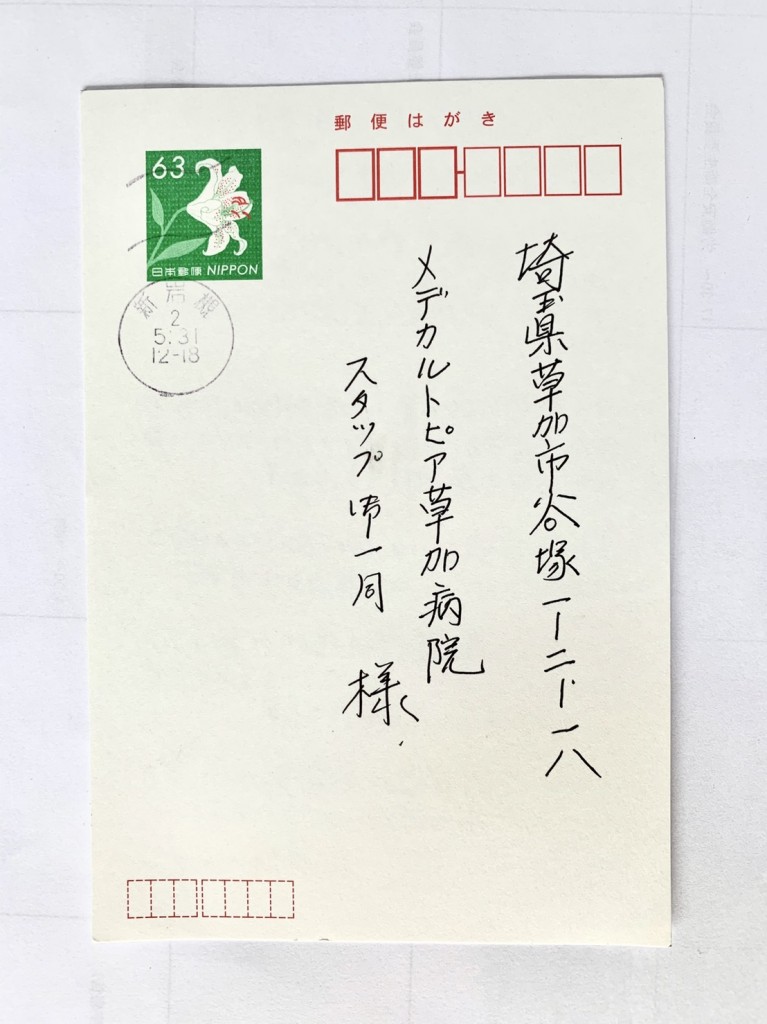 郵便はがき
63
日本郵便 NIPPON
新岩槻
2
5.31
12-18
埼玉県草加市谷塚一ー二ー一八
メデカルトピア草加病院
スタッフ 御一同 様